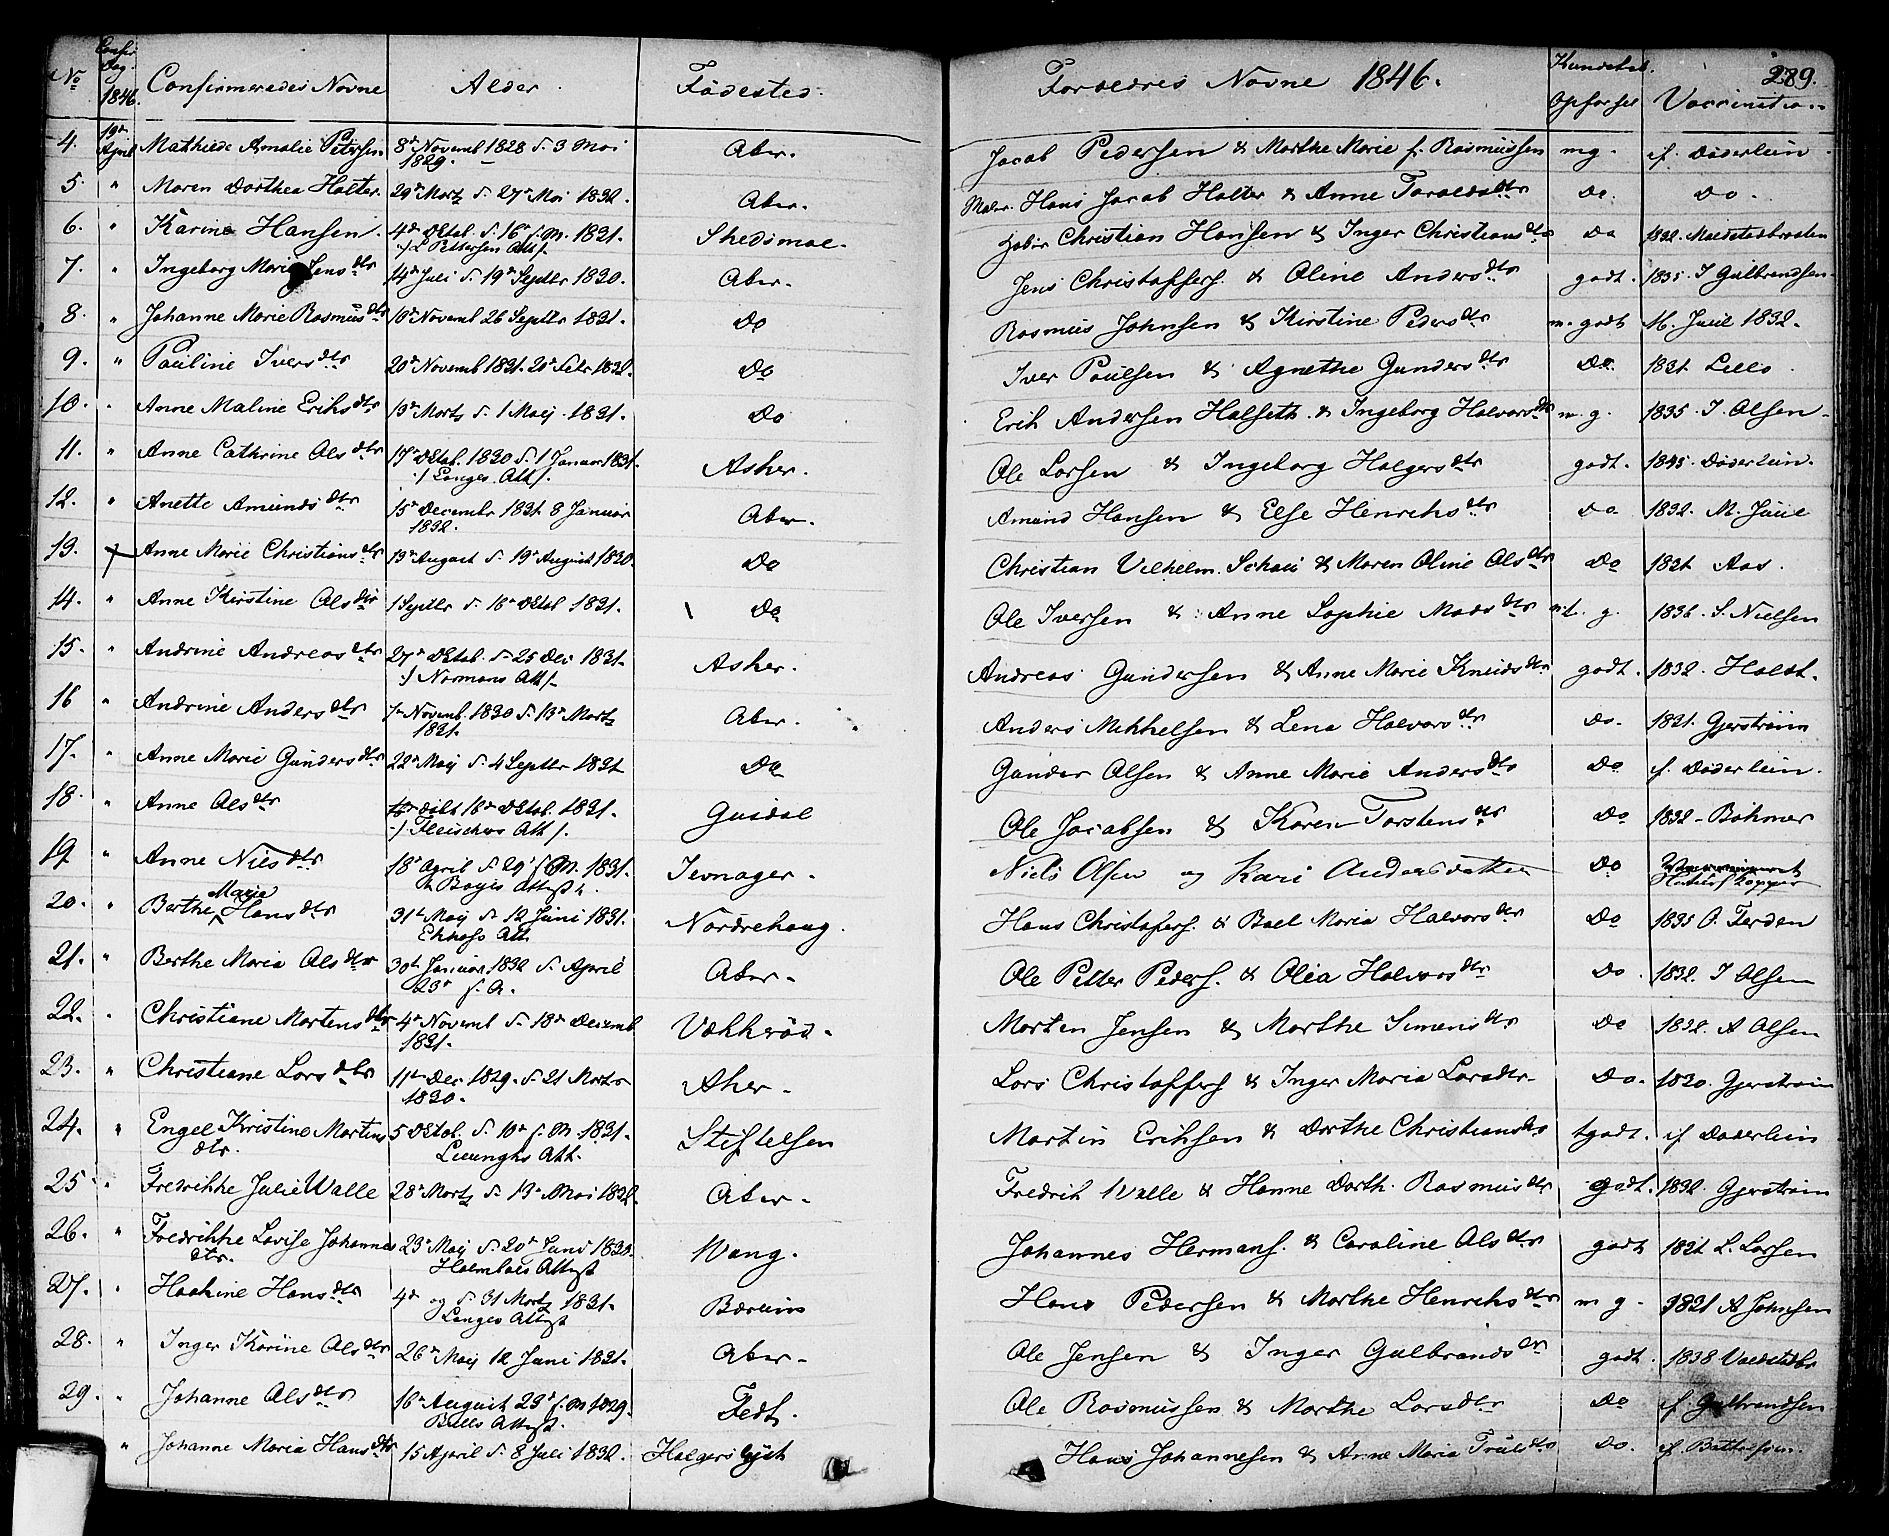 No Confir Dag. 1846. Confirmeredes Navne Alder. Fødested. Forældres Navne 1846. Kundskab. Opførsel Vaccination 289.
4. 19de April Mathilde Amalie Petersen 8de Novemb 1828 d. 3 Mai Aker. Jacob Pedersen & Marthe Marie f. Rasmussen mg. if. Døderlein
1829.
5. " Maren Dorthea Holter 29de Martz d. 27de Mai 1832. Aker. Maler. Hans Jacob Holter & Anne Taralds dtr Do. Do.
6. " Karine Hansen 4de Oktob. d. 16de s.M. 1831. Skedsmoe. Christian Hansen & Inger Christians dtr Do 1832.
/ L Pettersen Att/
7. " Ingeborg Marie Jens dtr 14de Juli d. 19de Septbr 1830. Aker. Jens Christoffers. & Oline Anders dtr godt. 1835. J Gulbrandsen
8. " Johanne Marie Rasmus dtr 10de Novemb 26 Septbr 1831. Do Rasmus Johnsen & Kirstine Peders dtr m. godt M. Juul 1832.
9. " Pauline Ivers dtr 20de Novemb 1831. 20de Febr 1832. Do Iver Paulsen & Agnethe Gunders dtr Do. 1831
10. " Anne Maline Eriks dtr 13de Martz d. 1 Maij 1831. Do Erik Andersen Halseth & Ingeborg Halvors dtr m. g. 1835. J. Olsen
11. " Anne Cathrine Ols dtr 17de Oktob. 1830 d. 1 Januar 1831. Asker. Ole Larsen & Ingeborg Holgers dtr godt. 1845. Døderlein.
/ Langes Att/.
12. " Anette Amunds dtr 15de Decembr 1831 8 Januar Aker. Amund Hansen & Else Henriks dtr Do 1832. M. Juul
1832.
13. Anne Marie Christians dtr 13de August d. 19de August 1830. Do Christian Vilhelm Schou & Maren Oline Ols dtr Do 1831 Aas.
14. " Anne Kirstine Ols dtr 1 Septbr d. 16de Oktob 1831. Do Ole Iversen & Anne Sophie Mads dtr mt. g. 1836. S. Nielsen
15. " Andrine Andreas dtr 27de Oktob. d. 25 Dec 1831. Asker. Andreas Gundersen & Anne Marie Knuds dtr godt. 1832. Holst.
/ Normans Att/.
16 " Andrine Anders dtr 7de Novemb. 1830 d. 13de Martz Aker. Anders Mikkelsen & Lena Halvors dtr Do. 1831. Gjerstrøm
1831.
17. " Anne Marie Gunders dtr 22de Maij d. 4 Septbr 1831 Do Gunder Olsen & Anne Marie Anders dtr Do if. Døderlein.
18. " Anne Ols dtr døbt 16de Oktob. 1831. Gusdal Ole Jacobsen & Karen Torstens dtr Do 1832. Bøhmer
/ Fleischers Att/.
19. " Anne Niels dtr 18de April d. 29de s.M. 1831. Jevnager. Niels Olsen og Kari Andersdatter Do
Boyes Attest
20. " Berthe Marie Hans dtr 31te Maij d. 12 Juni 1831. Nordrehoug. Hans Christofers. & Boel Maria Halvors dtr Do 1835 O. Ferden
Ekhofs Att
21. " Berthe Maria Ols dtr 30te Januar 1832 d. April Aker. Ole Petter Peders. & Olea Halvors dtr Do. 1832. J Olsen
23de s. A.
22. " Christiane Mortens dtr 4de Novemb d. 18de Decemb Morten Jensen & Marthe Simens dtr Do 1832. A Olsen
1831.
23. " Christiane Lars dtr 11te Dec 1829. d. 21 Martz Aker. Lars Christoffers & Inger Maria Larsdtr. Do. 1830. Gjerstrøm
1830.
24. " Engel Kirstine Martins 5 Oktob. d. 10de s.M. 1831. Stiftelsen Martin Eriksen & Dorthe Christians dtr tgodt. if Døderlein
dtr. Att.
25 " Fredrikke Julie Walle 28de Martz d. 13de Mai 1832. Aker. Fredrik Walle & Hanne Dorth. Rasmus dtr godt. 1832. Gjerstrøm
26. " Fredrikke Lovise Johannes 23de Maij d. 20de Juni 1830. Wang. Johannes Hermans. & Caroline Ols dtr godt 1831 L. Larsen
dtr. Holmboes Attest
27. " Haakine Hans dtr 4de og d. 31 Martz 1831. Bærum Hans Pedersen & Marthe Henriks dtr m g. 1831 A Johnsen
Langes Attest
28. " Inger Karine Ols dtr 26de Maij 12 Juni 1831. Aker. Ole Jensen & Inger Gulbrands dtr godt. 1838
29. " Johanne Ols dtr 16de August 23de s.M 1829. Fedt. Ole Rasmussen & Marthe Larsdtr Do if. Gulbrandsen
Attest.
" Johanne Maria Hans dtr 15 April d. 8 Juli 1832. Hans Johannesen & Anne Maria Truls dtr Do.